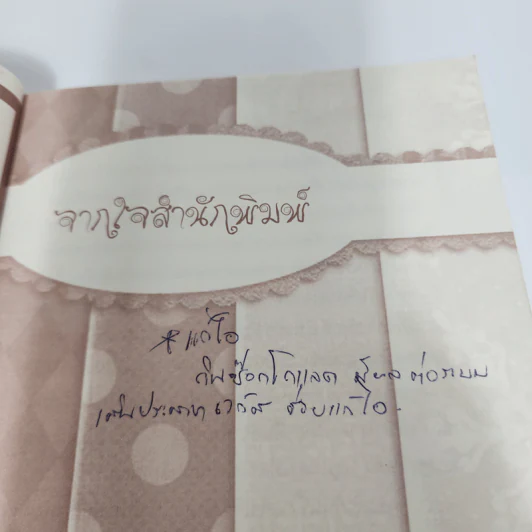 จากใจสำนักพิมพ์
* แก้ไอ
กินช๊อกโกแลต มีผลต่อระบบ
เส้นประสาทเวกัส ช่วยแก้ไอ.